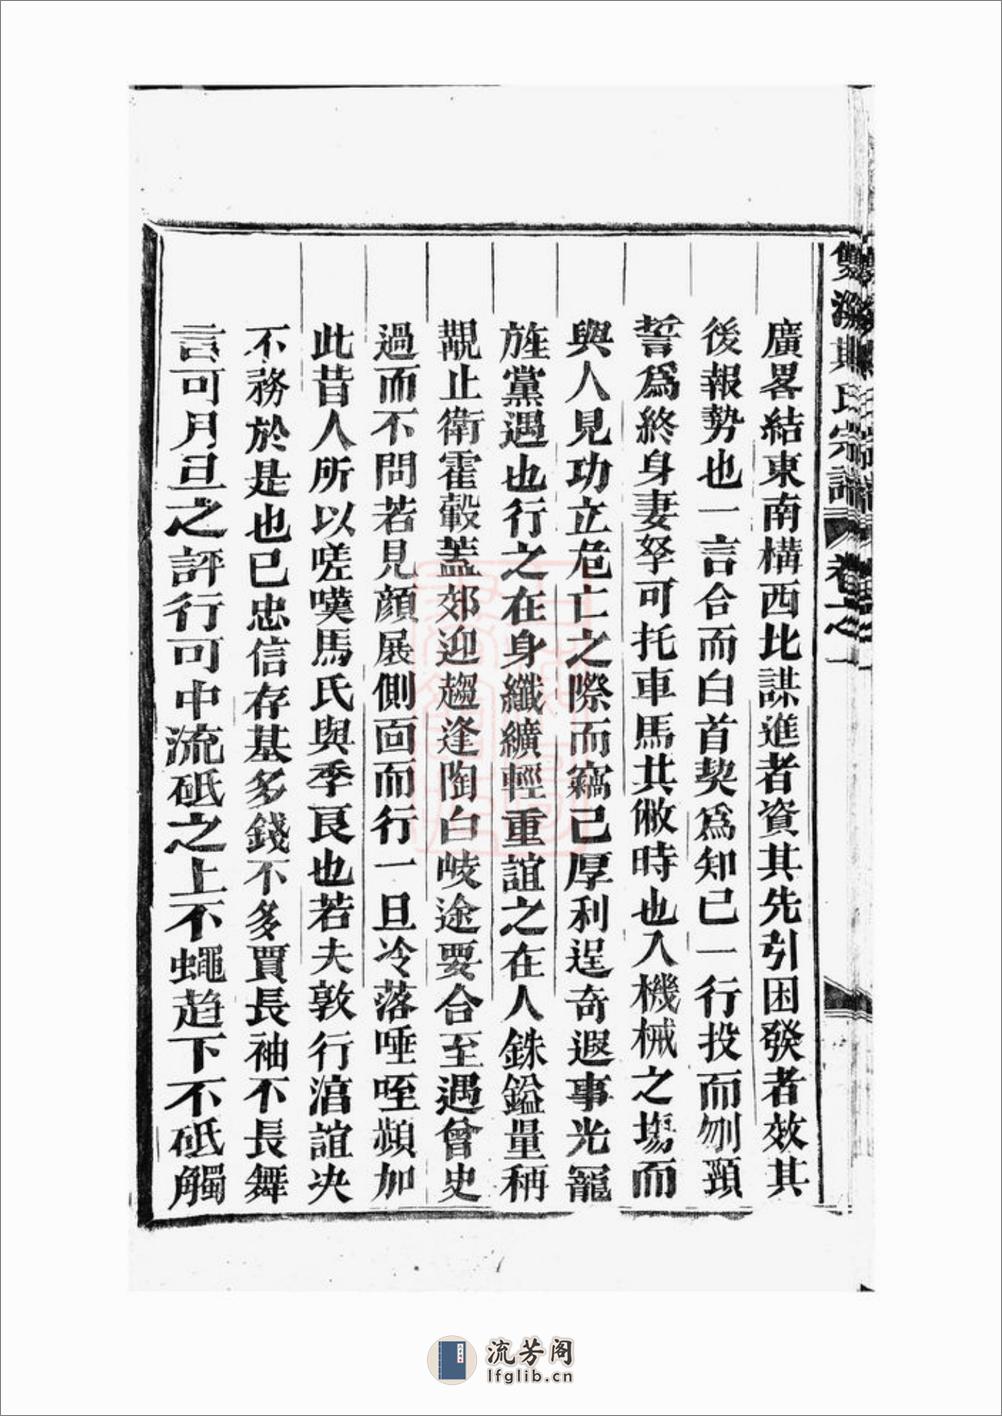 廣畧結東南構西北謀進者資其先引困發者效其
後報勢也一言合而白首契爲知已一行投而刎頸
誓爲終身妻孥可托車馬共敝時也入機械之塲而
與人見功立危亡之際而竊已厚利逞奇遐事光寵
旌黨遇也行之在身纖纊輕重誼之在人銖鎰量稱
覯止衛霍轂蓋郊迎趨逢陶白岐途要合至遇曾史
過而不問若見顔展側面而行一旦冷落唾咥頻加
此昔人所以嗟嘆馬氏與季良也若夫敦行湻誼决
不務於是也已忠信存基多錢不多賈長袖不長舞
言可月旦之評行可中流砥之上不蠅趋下不砥觸
氏宗譜 卷之一
流芳阁
lfglib.cn